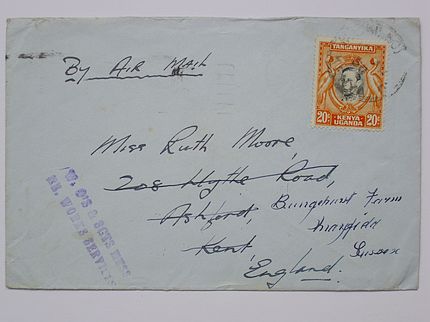 By Air Mail
TANGANYIKA
20c KENYA 20c
UGANDA
Miss Ruth Moore,
208 Hythe Road,
Ashford, Bungehurst Farm
Kent, Mayfield
Sussex
England.
W. O'S & SGTS MESS
WORKS SERVICES